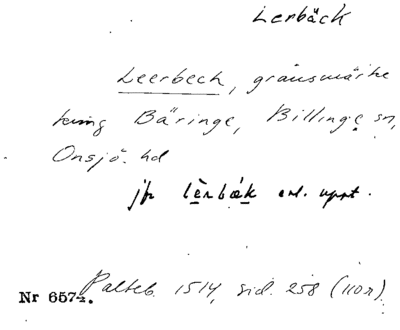 Lerbäck
Leerbeck, gränsmärke
kring Bäringe, Billinge sn,
Onsjö hd
jfr lèrbæk enl. uppt.
Palteb. 1514, sid. 258 (110r)
Nr 6574.